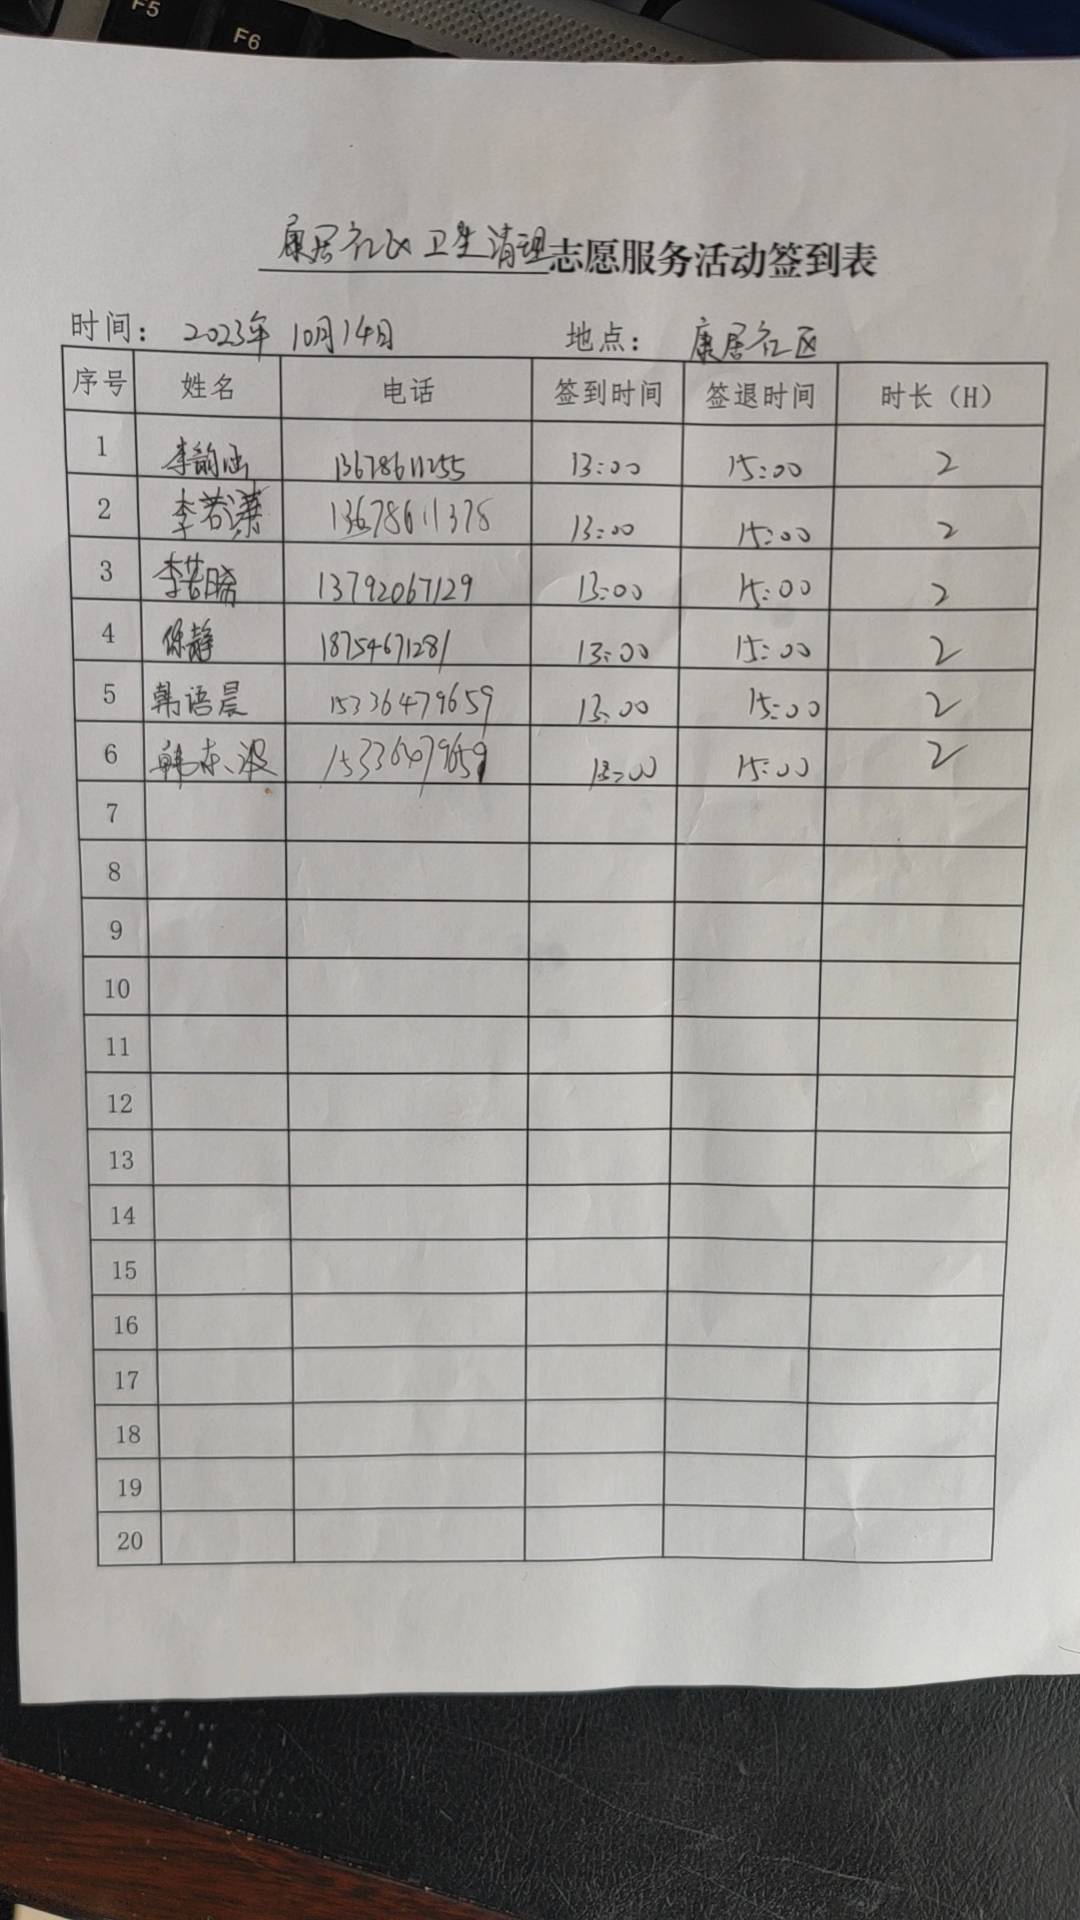 F5
F6
康居社区卫生清理志愿服务活动签到表
时间： 2023年 10月14日 地点： 康居社区
序号 姓名 电话 签到时间 签退时间 时长（H）
1 李韵涵 13678611255 13:00 15:00 2
2 李若潇 13678611378 13:00 15:00 2
3 李若曦 13792067129 13:00 15:00 2
4 徐静 18754671281 13:00 15:00 2
5 韩语晨 15336479659 13:00 15:00 2
6 韩东波 15336479659 13:00 15:00 2
7
8
9
10
11
12
13
14
15
16
17
18
19
20